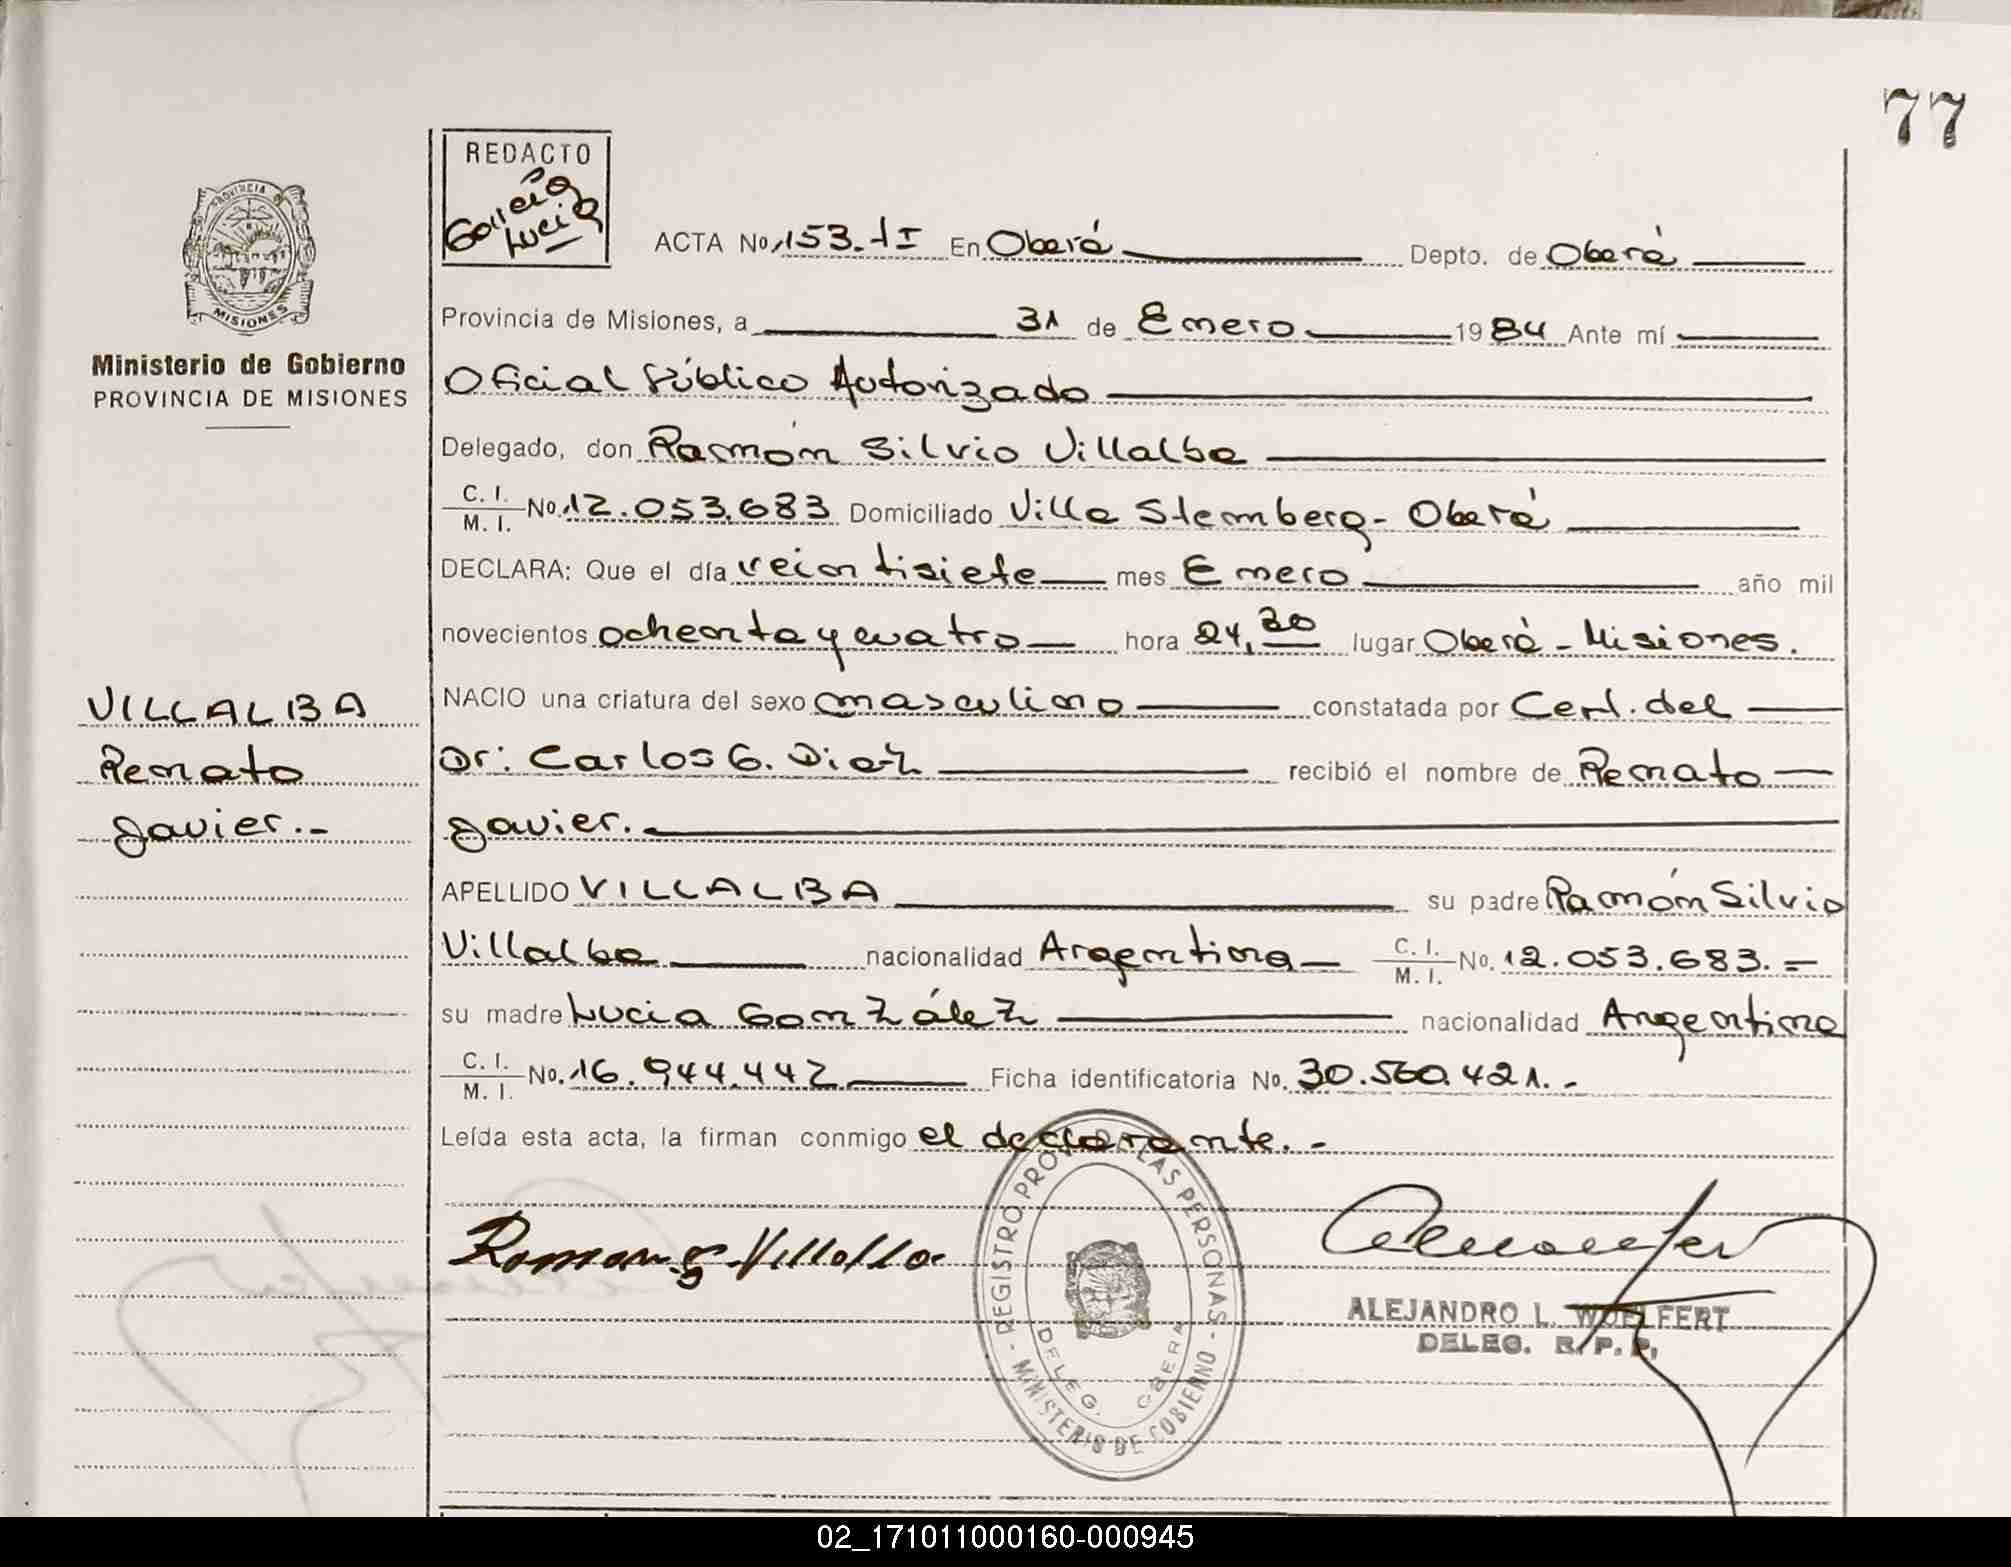 77
REDACTO
Lucia
PROVINCIA
MISIONES
Ministerio de Gobierno
PROVINCIA DE MISIONES
ACTA No. 153. TI En Oberá Depto. de Oberá
Provincia de Misiones, a 31 de Enero 1984 Ante mí
Oficial Público Autorizado
Delegado, don Ramón Silvio Villalba
C. I. / M. I. No. 12.053.683 Domiciliado Villa Stemberg - Oberá
DECLARA: Que el día veintisiete mes Enero año mil
novecientos ochenta y cuatro hora 24,30 lugar Oberá - Misiones.
NACIO una criatura del sexo masculino constatada por Cert. del
Dr: Carlos G. Diaz recibió el nombre de Renato
Javier.
APELLIDO VILLALBA su padre Ramón Silvio
Villalba nacionalidad Argentina C. I. / M. I. No. 12.053.683.=
su madre Lucia González nacionalidad Argentina
C. I. / M. I. No. 16.944.442 Ficha identificatoria No. 30.560.421.-
Leída esta acta, la firman conmigo el declarante.-
VILLALBA
Renato
Javier.-
Ramon S Villalba
REGISTRO PROV. DE LAS PERSONAS - MINISTERIO DE GOBIERNO -
DELEG. OBERA
ALEJANDRO L. WOELFERT
DELEG. R. P. P.
02_171011000160-000945